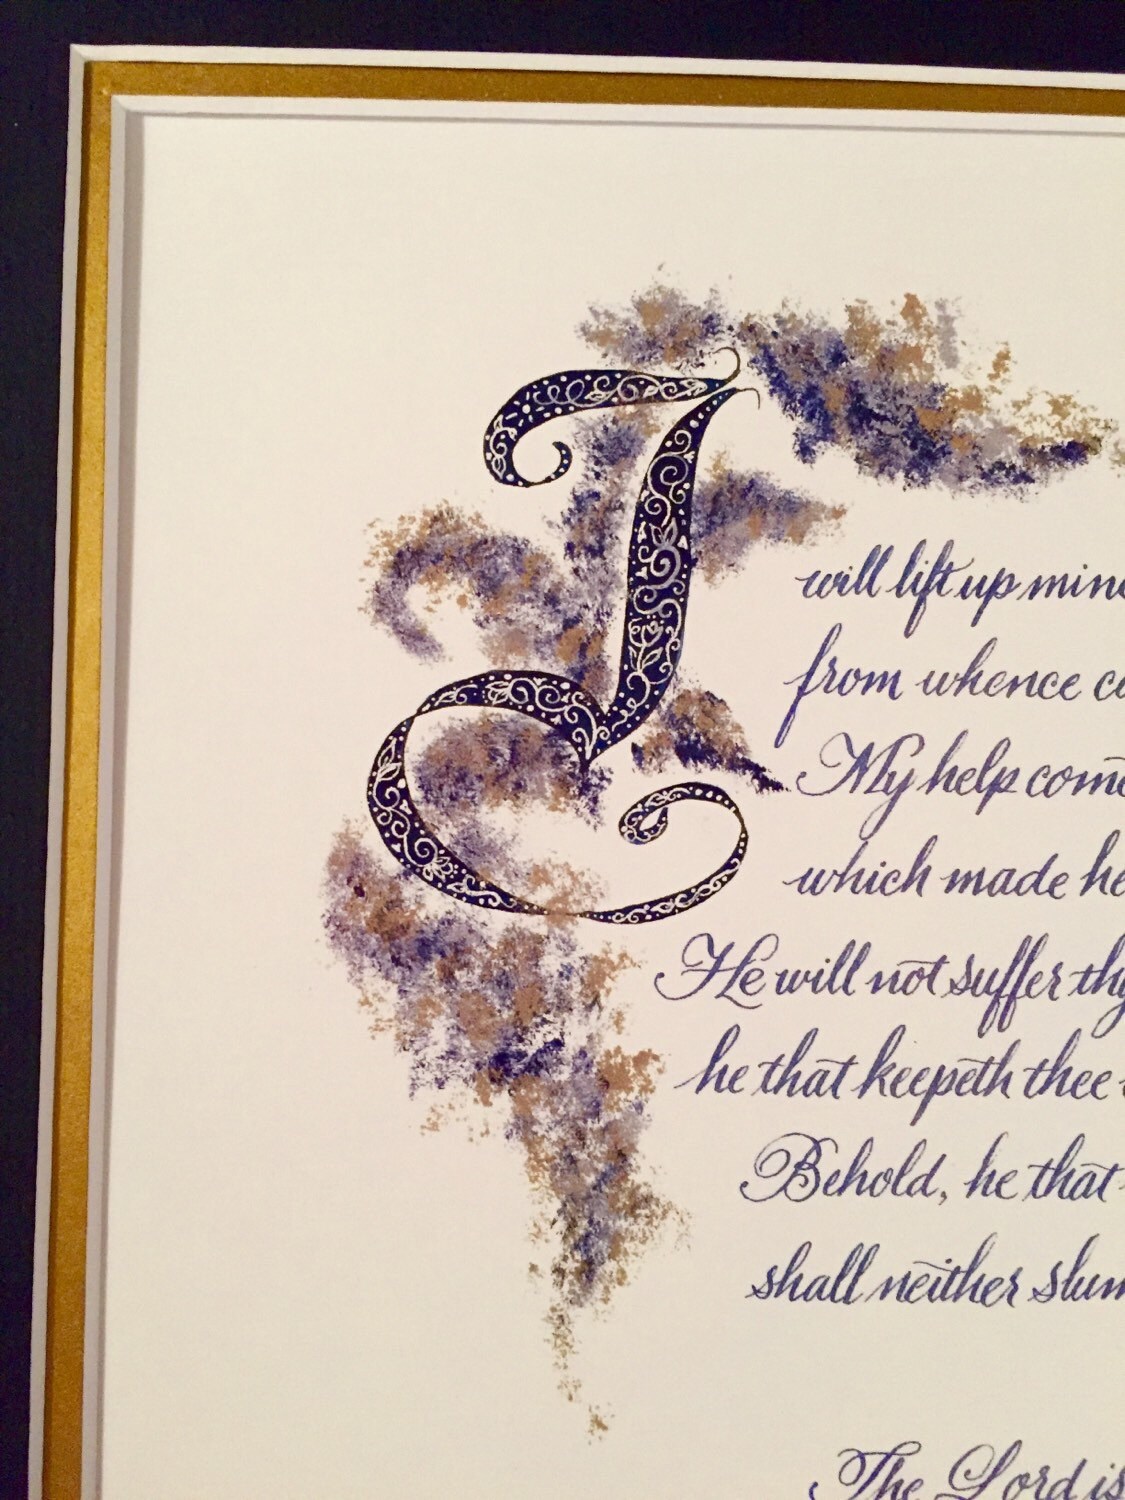 I
will lift up mine
from whence co
My help come
which made he
He will not suffer thy
he that keepeth thee
Behold, he that
shall neither slum
The Lord is